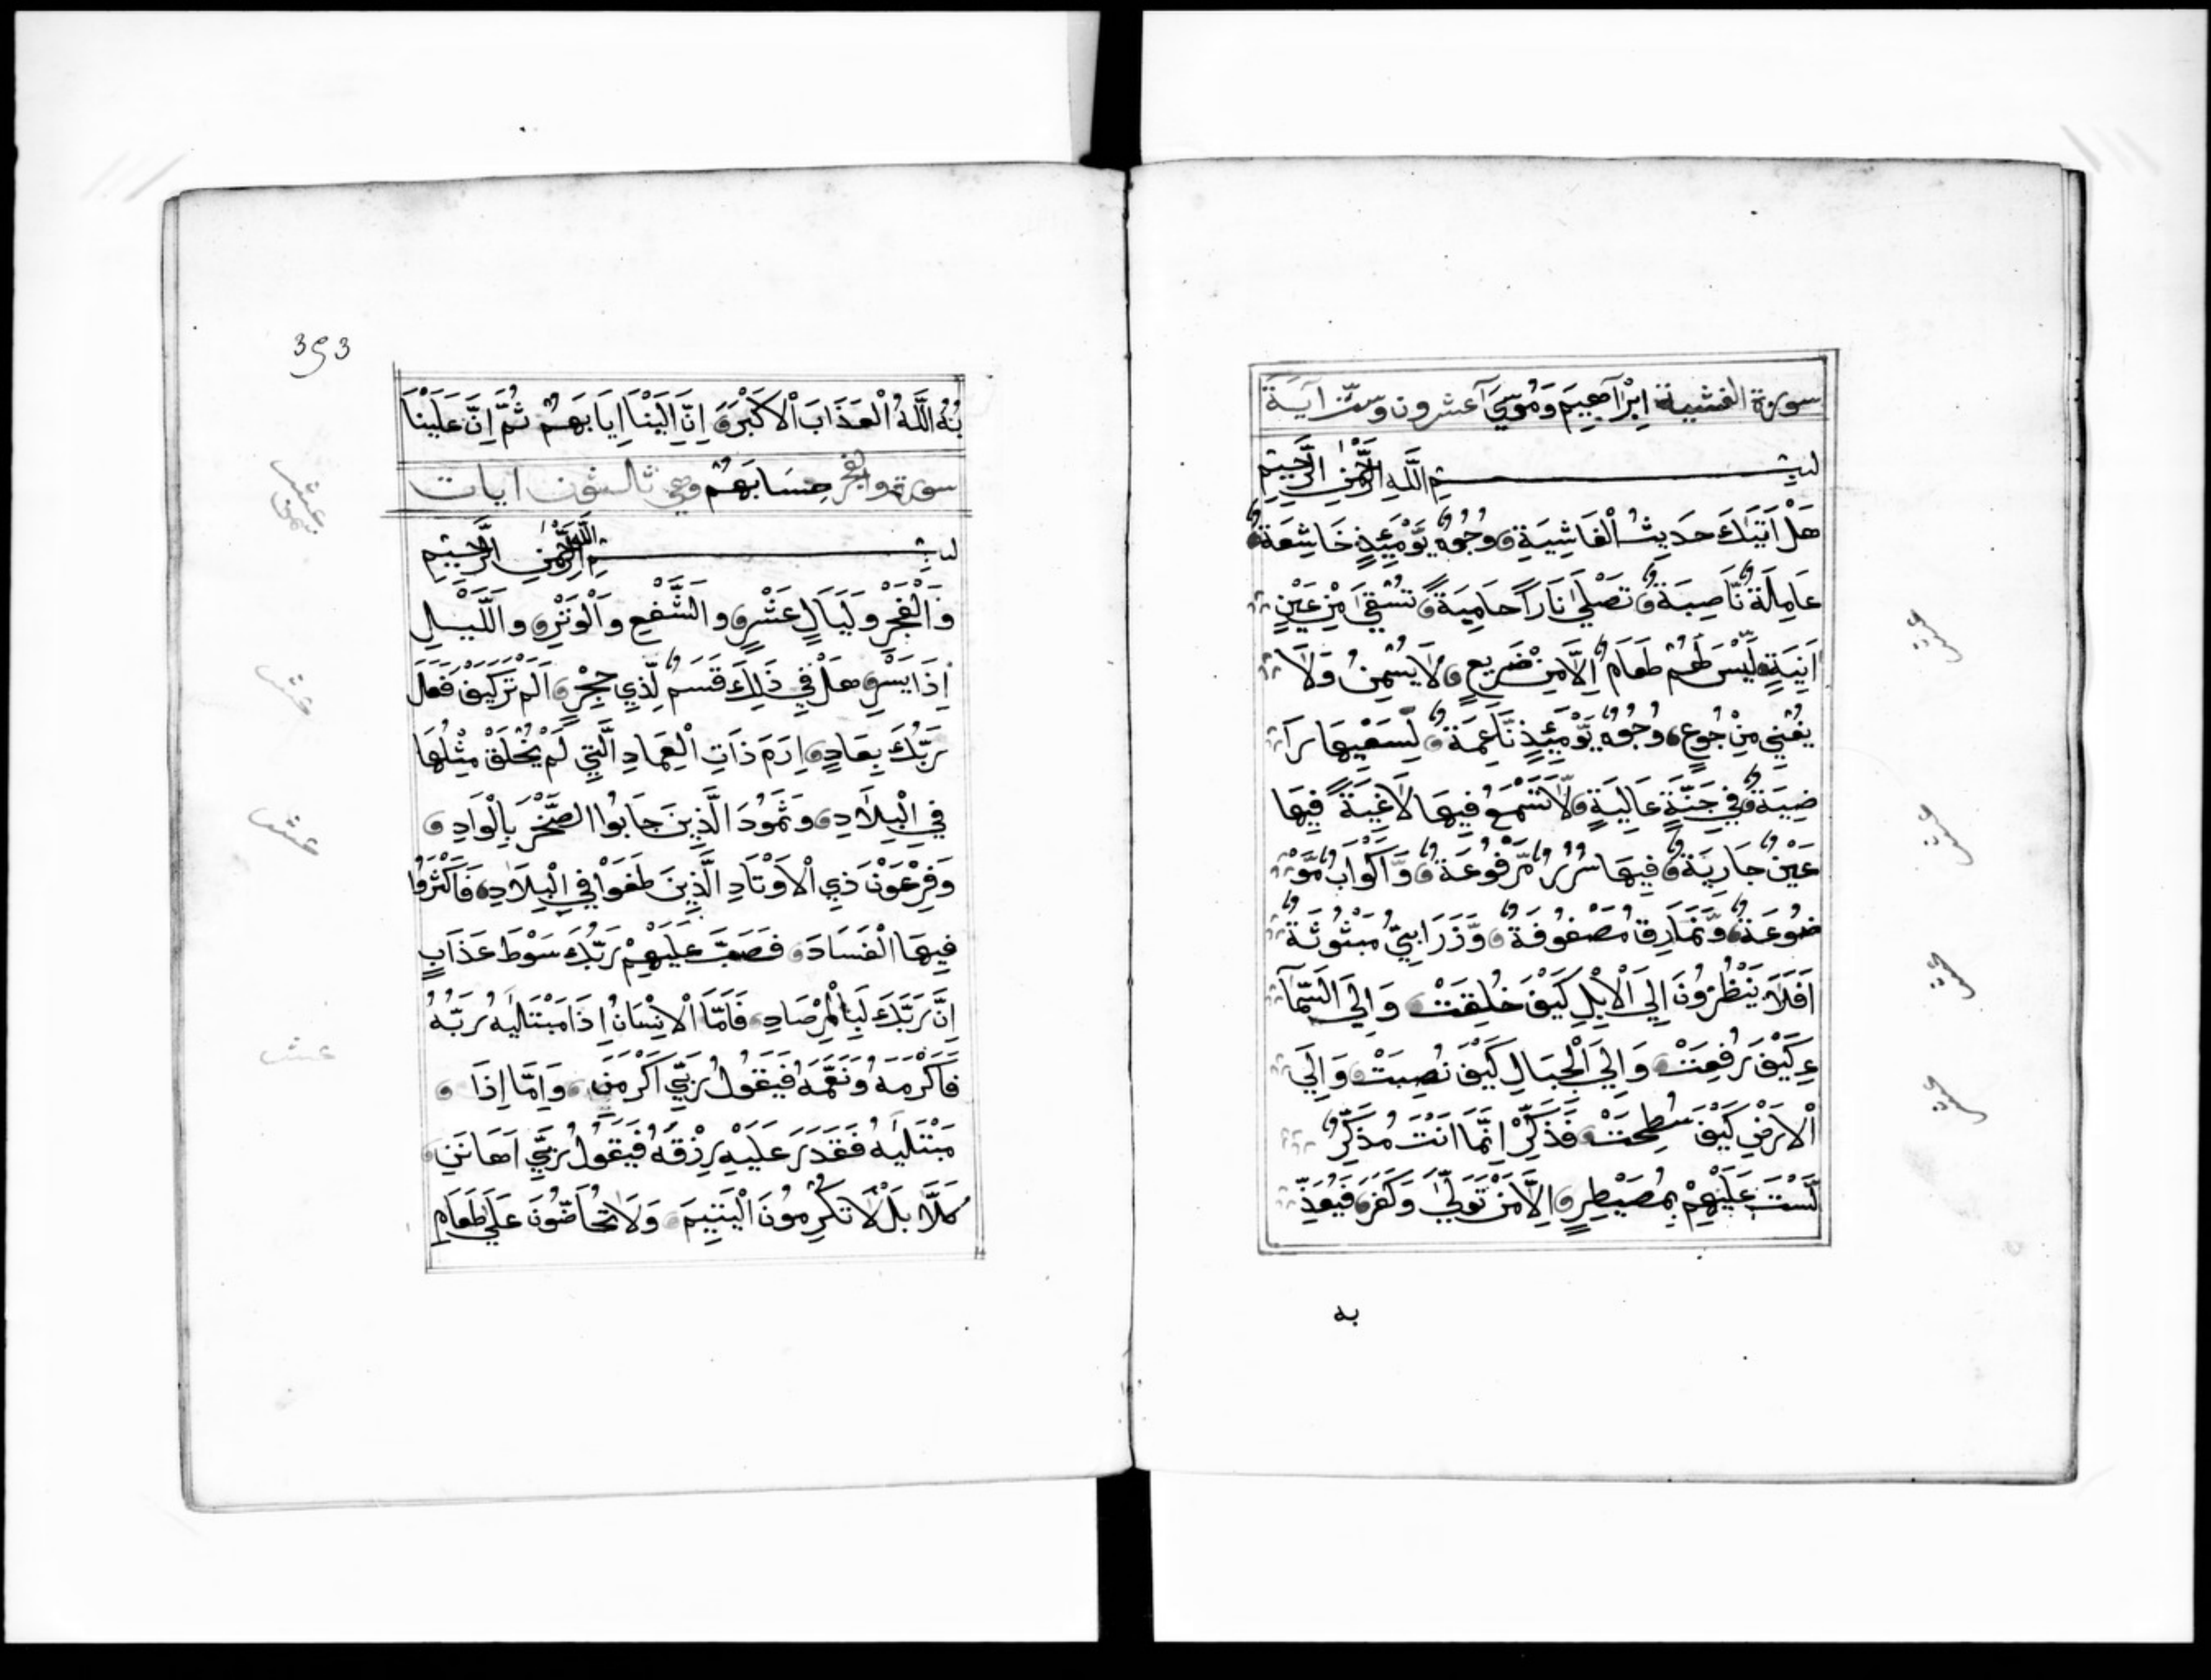 سورة الغشية اِبْرَاهِيمَ وَمُوسَىٰ عشرون وستّ اٰيَة
بِسْــــمِ اللَّهِ الرَّحْمٰنِ الرَّحِيمِ
هَلْ اَتَيٰكَ حَدِيثُ الْغَاشِيَةِ وُجُوهٌ يَّوْمَئِذٍ خَاشِعَةٌ
عَامِلَةٌ نَّاصِبَةٌ تَصْلَىٰ نَارًا حَامِيَةً تُسْقَىٰ مِنْ عَيْنٍ
اٰنِيَةٍ لَّيْسَ لَهُمْ طَعَامٌ اِلَّا مِنْ ضَرِيعٍ لَا يُسْمِنُ وَلَا
يُغْنِي مِنْ جُوعٍ وُجُوهٌ يَّوْمَئِذٍ نَّاعِمَةٌ لِّسَعْيِهَا رَا
ضِيَةٌ فِي جَنَّةٍ عَالِيَةٍ لَّا تَسْمَعُ فِيهَا لَاغِيَةً فِيهَا
عَيْنٌ جَارِيَةٌ فِيهَا سُرُرٌ مَّرْفُوعَةٌ وَّاَكْوَابٌ مَّوْ
ضُوعَةٌ وَّنَمَارِقُ مَصْفُوفَةٌ وَّزَرَابِيُّ مَبْثُوثَةٌ
اَفَلَا يَنْظُرُونَ اِلَى الْاِبِلِ كَيْفَ خُلِقَتْ وَاِلَى السَّمَآ
ءِ كَيْفَ رُفِعَتْ وَاِلَى الْجِبَالِ كَيْفَ نُصِبَتْ وَاِلَى
الْاَرْضِ كَيْفَ سُطِحَتْ فَذَكِّرْ اِنَّمَا اَنْتَ مُذَكِّرٌ
لَّسْتَ عَلَيْهِمْ بِمُصَيْطِرٍ اِلَّا مَنْ تَوَلَّىٰ وَكَفَرَ فَيُعَذِّ
به
393
بُهُ اللَّهُ الْعَذَابَ الْاَكْبَرَ اِنَّ اِلَيْنَا اِيَابَهُمْ ثُمَّ اِنَّ عَلَيْنَا
سورة والفجر حِسَابَهُمْ وهي ثالثون ايات
بِسْــــمِ اللَّهِ الرَّحْمٰنِ الرَّحِيمِ
وَالْفَجْرِ وَلَيَالٍ عَشْرٍ وَالشَّفْعِ وَالْوَتْرِ وَاللَّيْلِ
اِذَا يَسْرِ هَلْ فِي ذٰلِكَ قَسَمٌ لِّذِي حِجْرٍ اَلَمْ تَرَ كَيْفَ فَعَلَ
رَبُّكَ بِعَادٍ اِرَمَ ذَاتِ الْعِمَادِ الَّتِي لَمْ يُخْلَقْ مِثْلُهَا
فِي الْبِلَادِ وَثَمُودَ الَّذِينَ جَابُوا الصَّخْرَ بِالْوَادِ
وَفِرْعَوْنَ ذِي الْاَوْتَادِ الَّذِينَ طَغَوْا فِي الْبِلَادِ فَاَكْثَرُوا
فِيهَا الْفَسَادَ فَصَبَّ عَلَيْهِمْ رَبُّكَ سَوْطَ عَذَابٍ
اِنَّ رَبَّكَ لَبِالْمِرْصَادِ فَاَمَّا الْاِنْسَانُ اِذَا مَبْتَلَيٰهُ رَبُّهُ
فَاَكْرَمَهُ وَنَعَّمَهُ فَيَقُولُ رَبِّي اَكْرَمَنِ وَاَمَّا اِذَا
مَبْتَلَيٰهُ فَقَدَرَ عَلَيْهِ رِزْقَهُ فَيَقُولُ رَبِّي اَهَانَنِ
كَلَّا بَلْ لَّا تُكْرِمُونَ الْيَتِيمَ وَلَا تَحَاضُّونَ عَلَىٰ طَعَامِ
عشر
عشر
عشر